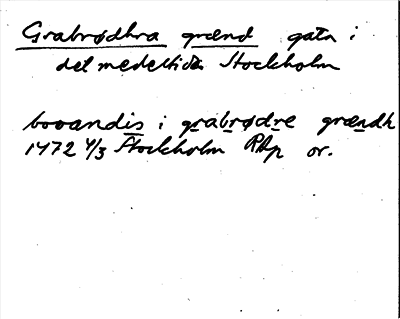 Grabrødhra grænd gata i
det medeltida Stockholm
booandis i grabrødre grændh
1472 4/3 Stockholm RAp or.